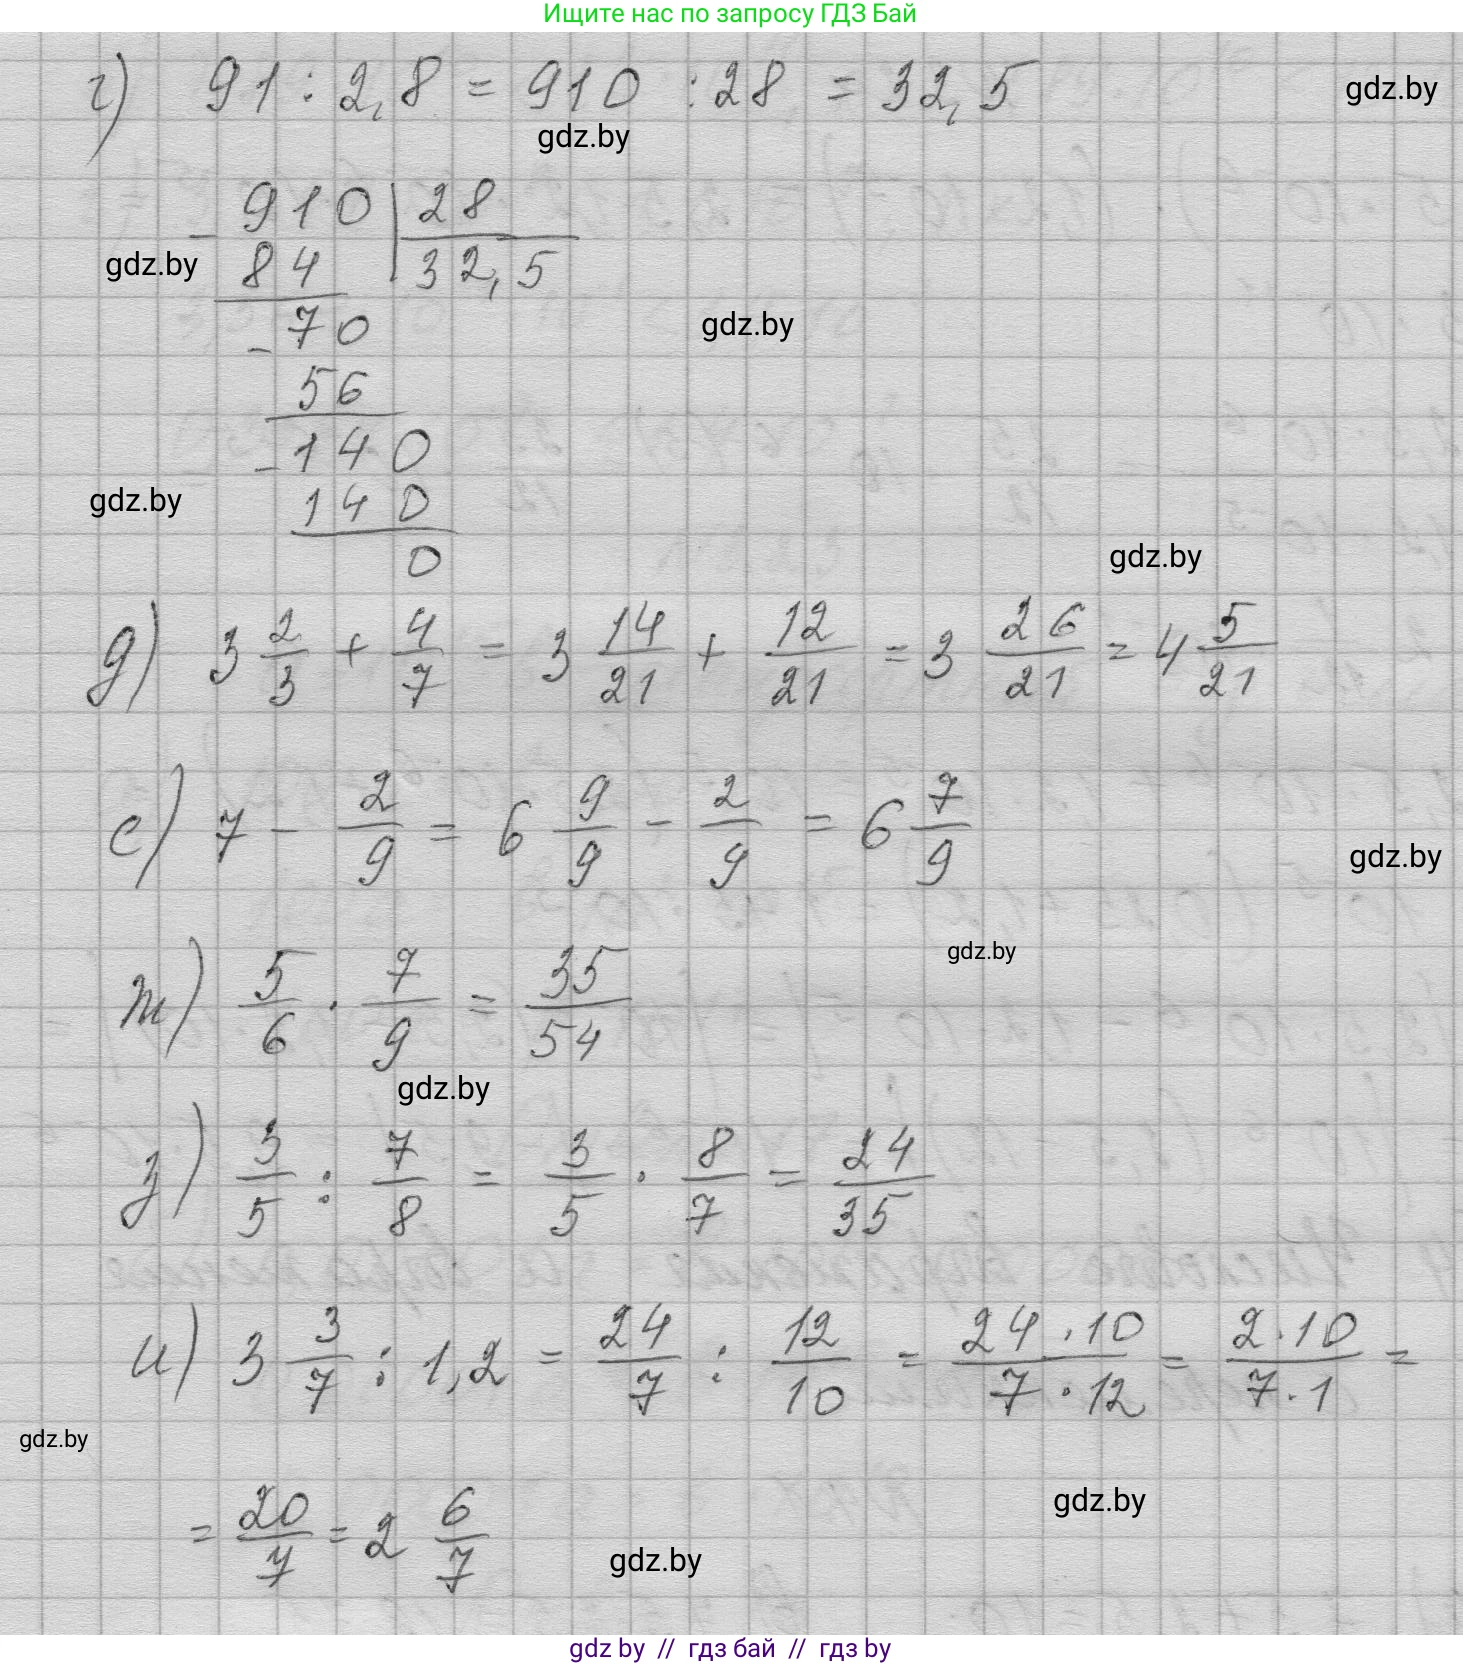 Ищите нас по запросу ГДЗ Бай
г) 91 : 2,8 = 910 : 28 = 32,5
gdz.by
gdz.by
- 910 | 28
84 | 32,5
gdz.by
- 70
gdz.by
56
- 140
140
gdz.by
0
gdz.by
д) 3 2/3 + 4/7 = 3 14/21 + 12/21 = 3 26/21 = 4 5/21
е) 7 - 2/9 = 6 9/9 - 2/9 = 6 7/9
gdz.by
gdz.by
ж) 5/6 · 7/9 = 35/54
gdz.by
з) 3/5 : 7/8 = 3/5 · 8/7 = 24/35
и) 3 3/7 : 1,2 = 24/7 : 12/10 = 24 · 10/7 · 12 = 2 · 10/7 · 1 =
gdz.by
= 20/7 = 2 6/7
gdz.by
gdz.by
gdz by // гдз бай // гдз by